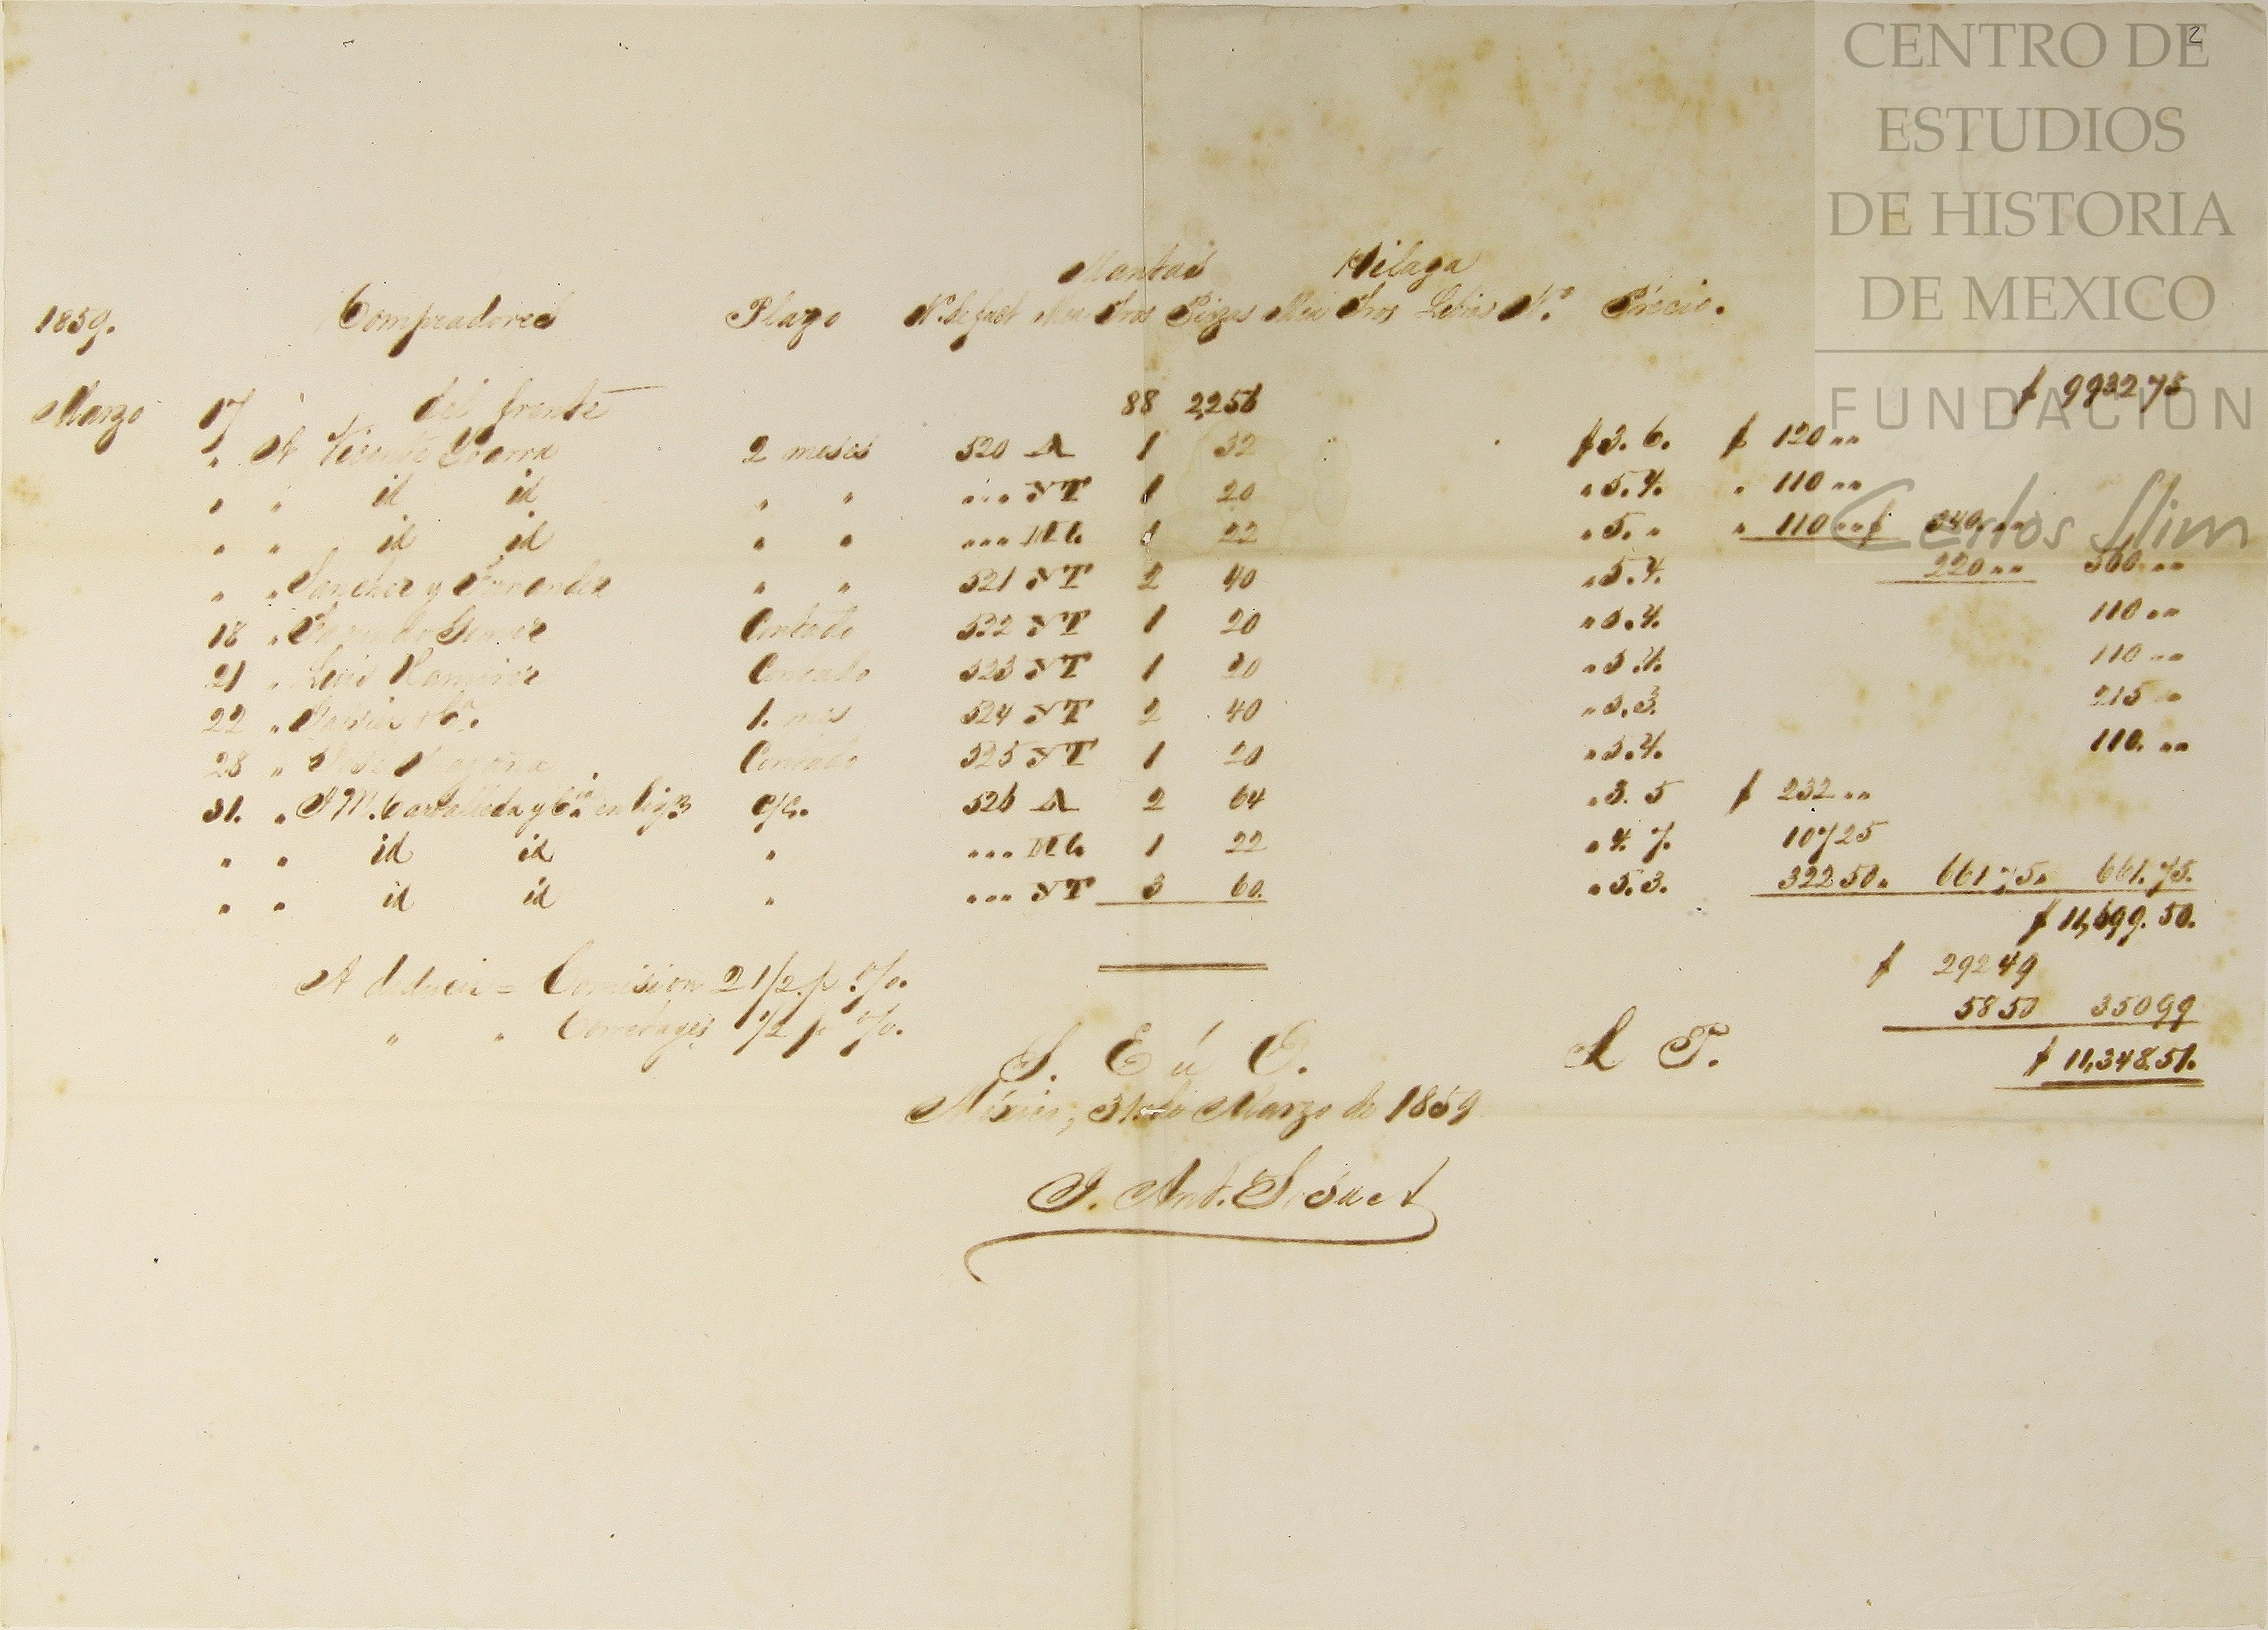 2
CENTRO DE
ESTUDIOS
DE HISTORIA
DE MEXICO
FUNDACION
Carlos Slim
Mantas Hilaza
1859. Compradores Plazo N.º de fact Tros Piezas Tros Libras N.º Precio.
Marzo 17 Del frente 88 2256 $ 9932 75
" A Vicente Ybarra 2 meses 520 A 1 32 $ 3. 6. $ 120 ""
" " id id " " ... NT 1 20 " 5. 4. " 110 ""
" " id id " " ... 1 22 " 5. " " 110 "" $ 340. ""
" " Sanchez y Fernandez " " 521 NT 2 40 " 5. 4. 220 "" 560 ""
18 " Gomez Contado 522 NT 1 20 " 5. 4. 110 ""
21 " Luis Ramirez Contado 523 NT 1 20 " 5. 4. 110 ""
22 " y C.ª 1. mes 524 NT 2 40 " 5. 3. 215 ""
28 " José Contado 525 NT 1 20 " 5. 4. 110. ""
31. " J M. Carballeda y C.ia en liq.on c/c. 526 A 2 64 " 3. 5 $ 232 ""
" " id id " ... 1 22 " 4. 7. 107 25
" " id id " ... NT 3 60. " 5. 3. 322 50. 661 75. 661. 75.
$ 11,699. 50.
A deducir = Comision 2 1/2 p.% $ 292 49
" " Corretages 1/2 p % 58 50 350 99
S. E ú O. L P. $ 11,348.51.
México, 31 de Marzo de 1859
J. Ant. Suet